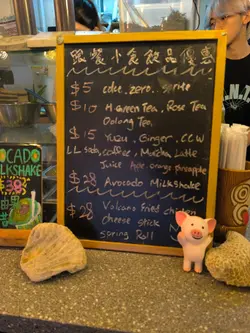 跟餐小食飲品優惠
$5 coke, zero, sprite
$10 H green Tea, Rose Tea
Oolong Tea
$15 Yuzu, Ginger, CCW
LL soda, coffee, Mocha, Latte
Juice apple orange pineapple
$28 Avocado Milkshake
$28 Volcano fried chicken
cheese stick
spring Roll
CADO
LKSHAKE
38